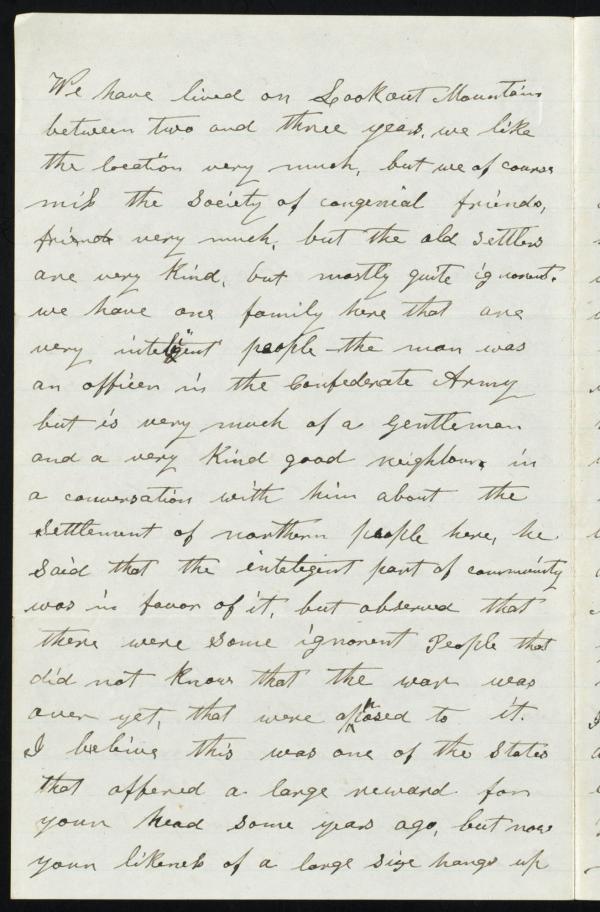 We have lived on Lookout Mountain
between two and three years, we like
the location very much, but we of course
miss the Society of congenial friends,
friends very much, but the old settlers
are very kind, but mostly quite ignorent.
we have one family here that are
very inteligent people the man was
an officer in the Confederate Army
but is very much of a gentleman
and a very kind good neighbour, in
a conversation with him about the
settlement of northern people here, he
said that the inteligent part of community
was in favor of it, but observed that
there were some ignorent People that
did not know that the war was
over yet, that were opposed to it.
I beleive this was one of the States
that offered a large reward for
your head some years ago, but now
your likeness of a large size hangs up